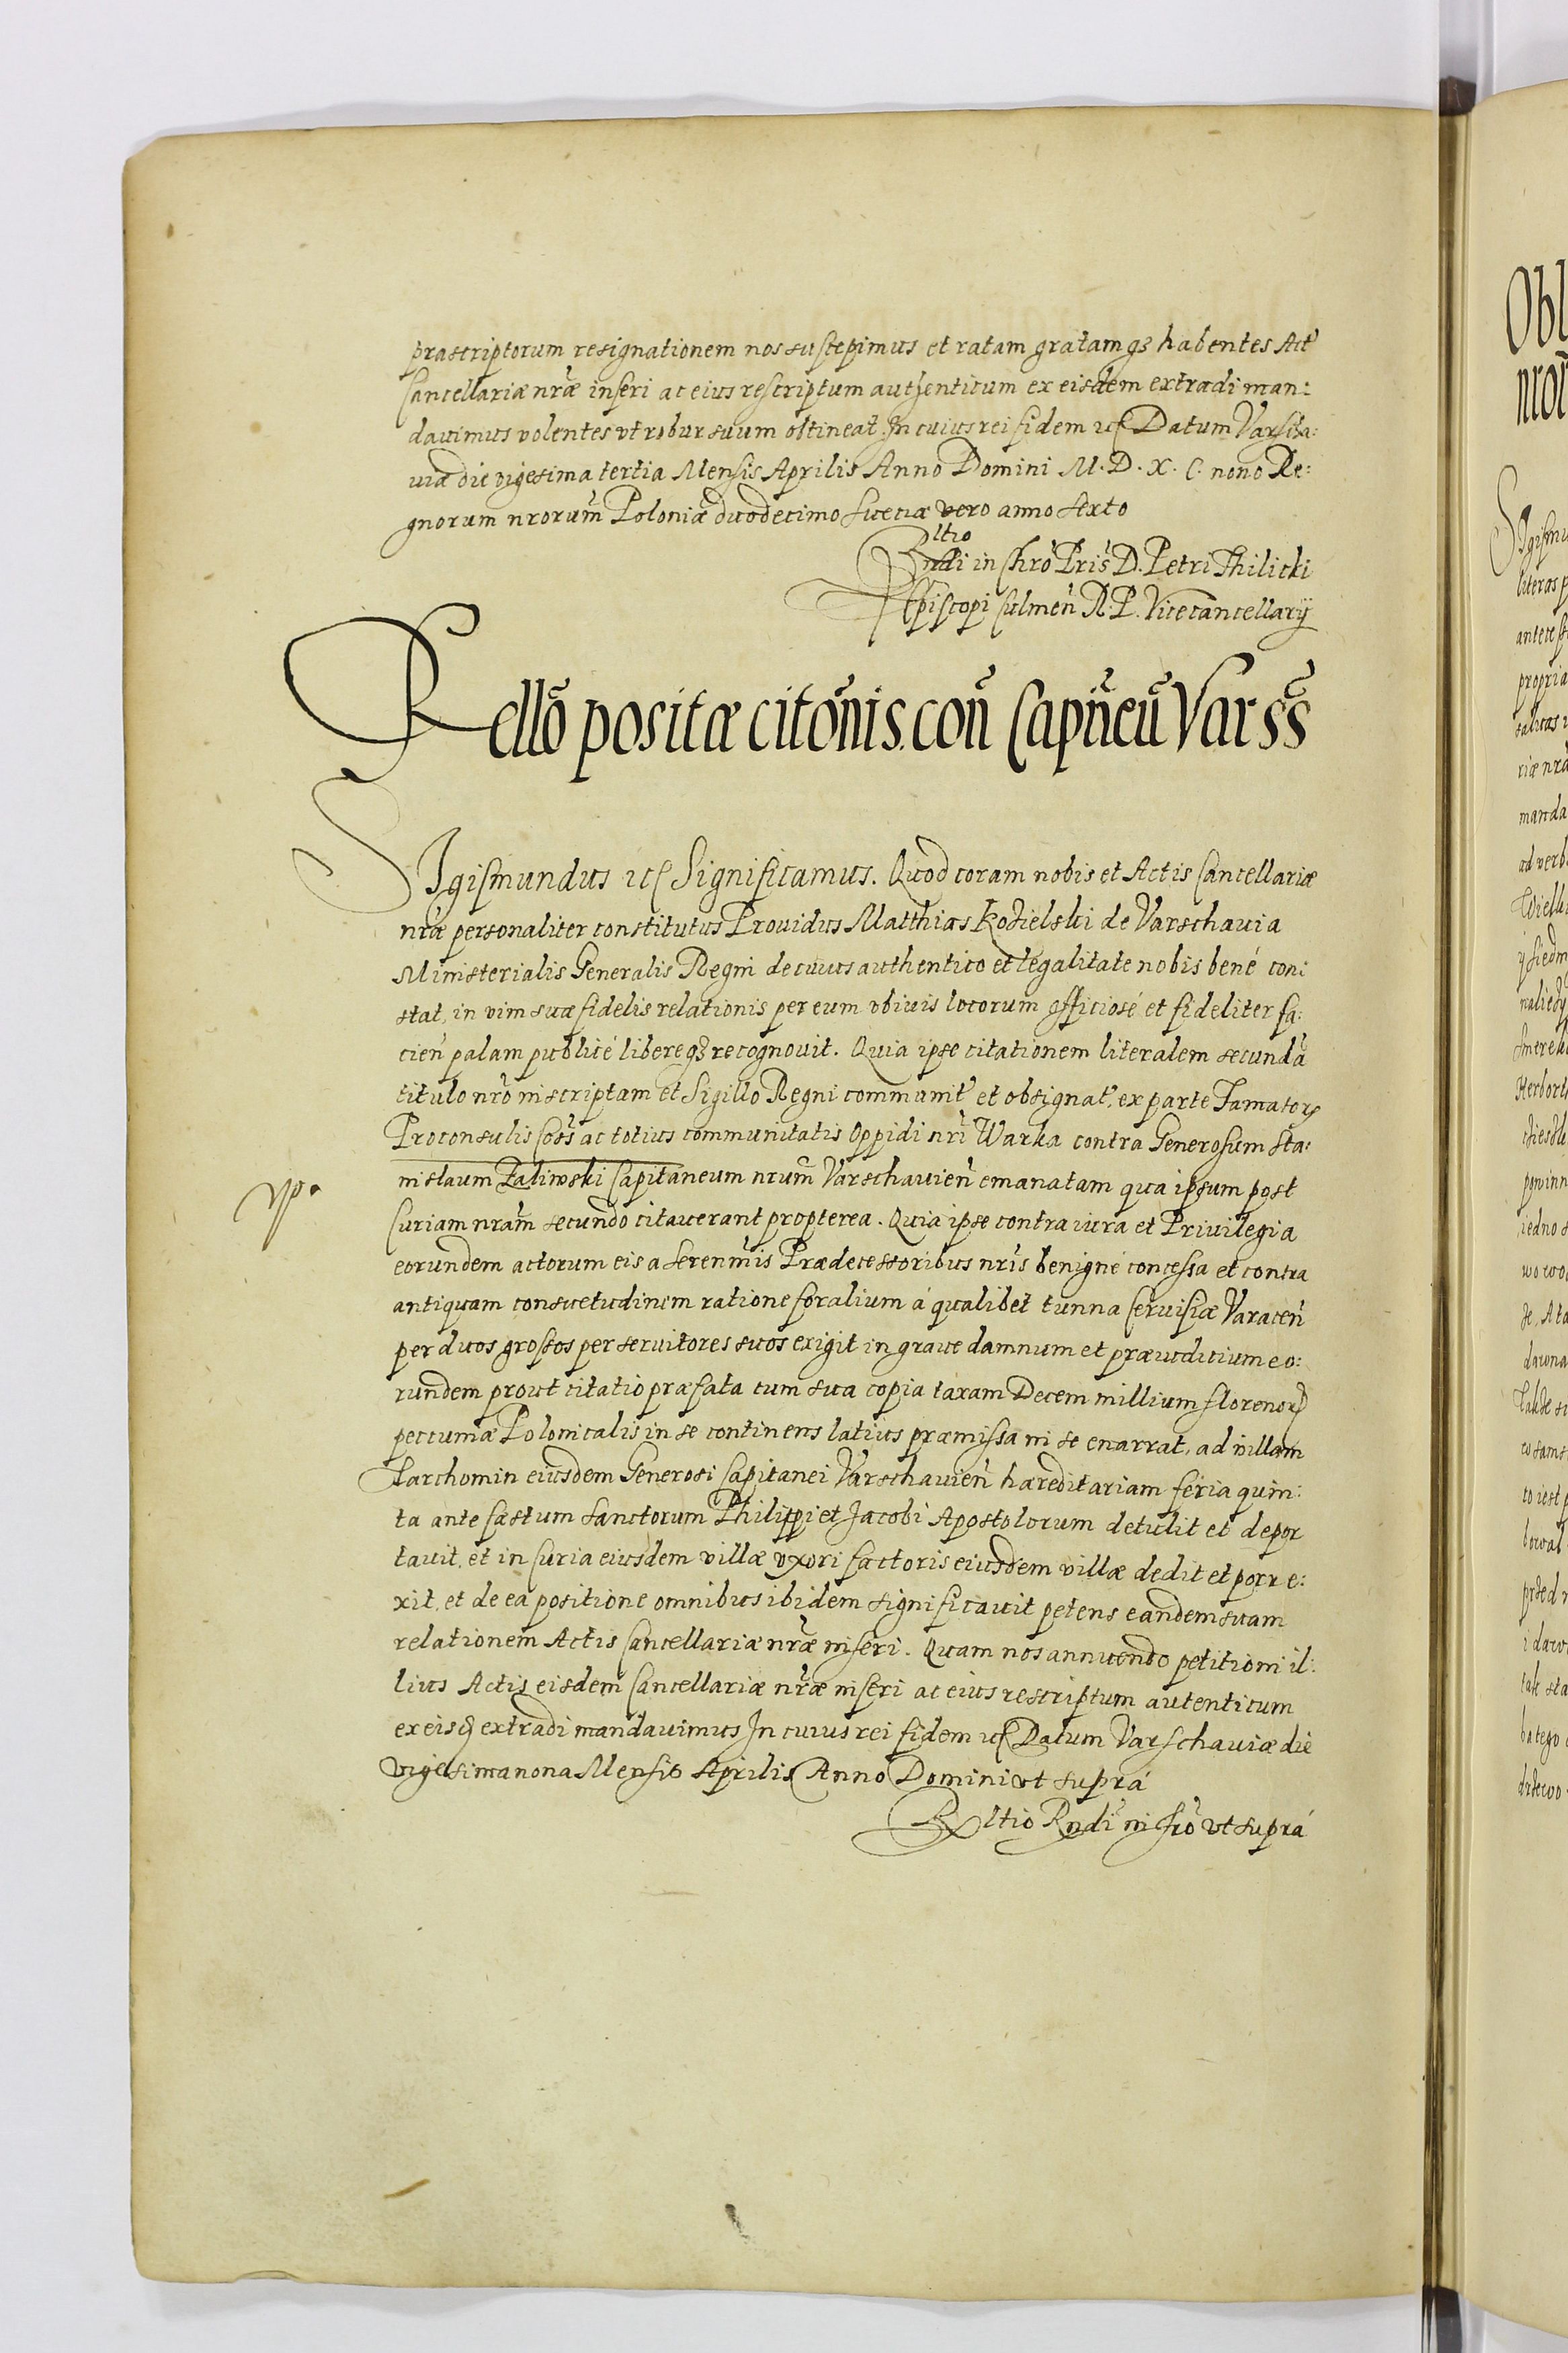 præscriptorum resignationem nos suscepimus et ratam gratamqȝ habentes Act'
Cancellariæ nr̃æ inseri ac eius rescriptum authenticum ex eisdem extradi man:
dauimus volentes vt robur suum obtineat. In cuius rei fidem etc Datum Varscha:
uiæ die vigesima tertia Mensis Aprilis Anno Domini M. D. X. C. nono Re:
gnorum nrorum̃ Poloniæ duodecimo Sueciæ vero anno sexto
Rltio
Rndi in Chrõ Pris̃ D. Petri Thilicki
Episcopi Culmen̄ R. P. Vicecancellarij
Rellõ positæ citõnis con̄ Capn̄eū Varss
Sigismundus etc Significamus. Quod coram nobis et Actis Cancellariæ
nr̃æ personaliter constitutus Prouidus Matthias Kozielski de Varschauia
Ministerialis Generalis Regni de cuius authentico et legalitate nobis bené con:
stat, in vim suæ fidelis relationis per eum vbiuis locorum officiosé et fideliter fa:
cien̄ palam publicé libereqȝ recognouit. Quia ipse citationem literalem secundā
titulo nrõ inscriptam et Sigillo Regni communit' et obsignat', ex parte Famator
Proconsulis Coss̃ ac totius communitatis Oppidi nrĩ Warka contra Generosum Sta:
nislaum Zaliwski Capitaneum nrum̃ Varschauien̄ emanatam qua ipsum post
Curiam nram̃ secundo citauerant propterea. Quia ipse contra iura et Priuilegia
eorundem actorum eis a Serenm̃is Prædecessoribus nrĩs benigné concessa et contra
antiquam consuetudinem ratione foralium á qualibet tunna Ceruisiæ Varacen̄
per duos grossos per seruitores suos exigit in graue damnum et præiudicium eo:
rundem prout citatio præfata cum sua copia taxam Decem millium florenor
pecuniæ Polonicalis in se continens latius præmissa in se enarrat, ad villam
Tarchomin eiusdem Generosi Capitanei Varschauien̄ hæreditariam feria quin:
ta ante fæstum Sanctorum Philippi et Jacobi Apostolorum detulit et depor
tauit, et in Curia eiusdem villæ vxori factoris eiusdem villæ dedit et porre:
xit, et de ea positione omnibus ibidem significauit petens eandem suam
relationem Actis Cancellariæ nr̃æ inseri. Quam nos annuendo petitioni il:
lius Actis eisdem Cancellariæ nr̃æ inseri ac eius rescriptum autenticum
ex eisd extradi mandauimus In cuius rei fidem etc Datum Varschauiæ die
vigesima nona Mensis Aprilis Anno Domini vt suprá
Rltio Rndĩ in Chrõ vt suprá